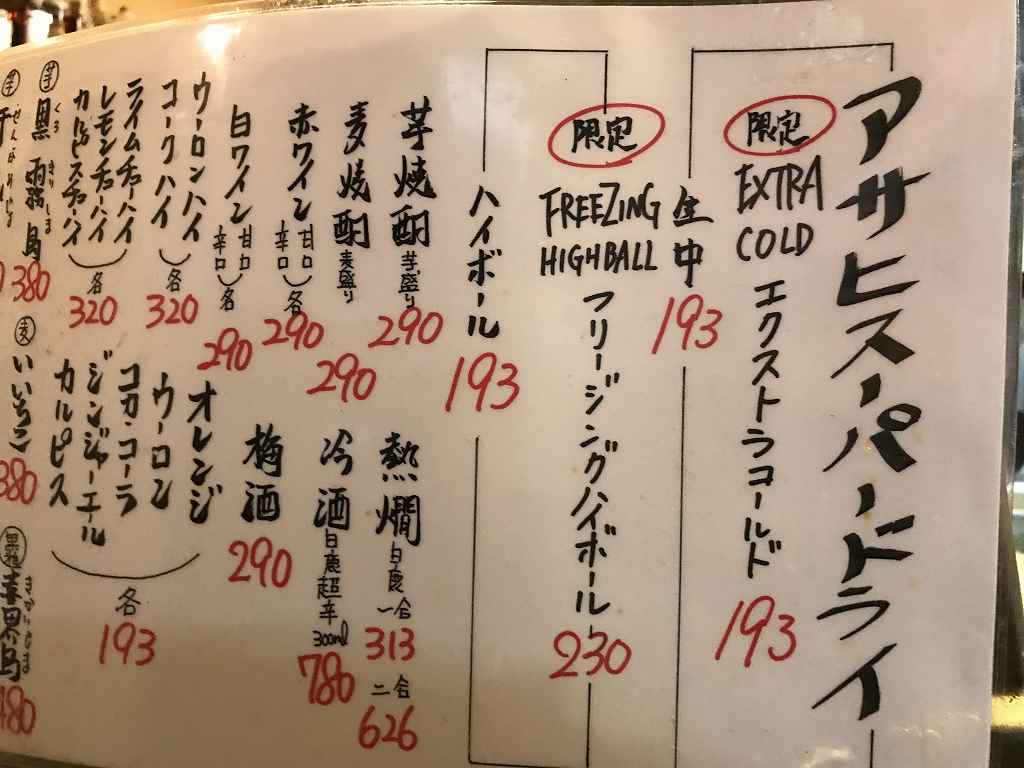 アサヒスーパードライ
限定
EXTRA
COLD
エクストラコールド
193
生中
193
限定
FREEZING
HIGHBALL
フリージングハイボール
230
ハイボール
193
芋焼酎 芋盛り
290
麦焼酎 麦盛り
290
赤ワイン 甘口 辛口 各
290
白ワイン 甘口 辛口 各
290
熱燗 白鹿 一合
313
二合
626
冷酒 白鹿超辛 300ml
780
梅酒
290
ウーロンハイ
コークハイ
各
320
ライムチューハイ
レモンチューハイ
カルピスチューハイ
各
320
オレンジ
ウーロン
コカ・コーラ
ジンジャーエール
カルピス
各
193
芋 黒霧島 くろ きりしま
380
麦 いいちこ
380
喜界島 きかいじま
480
芋